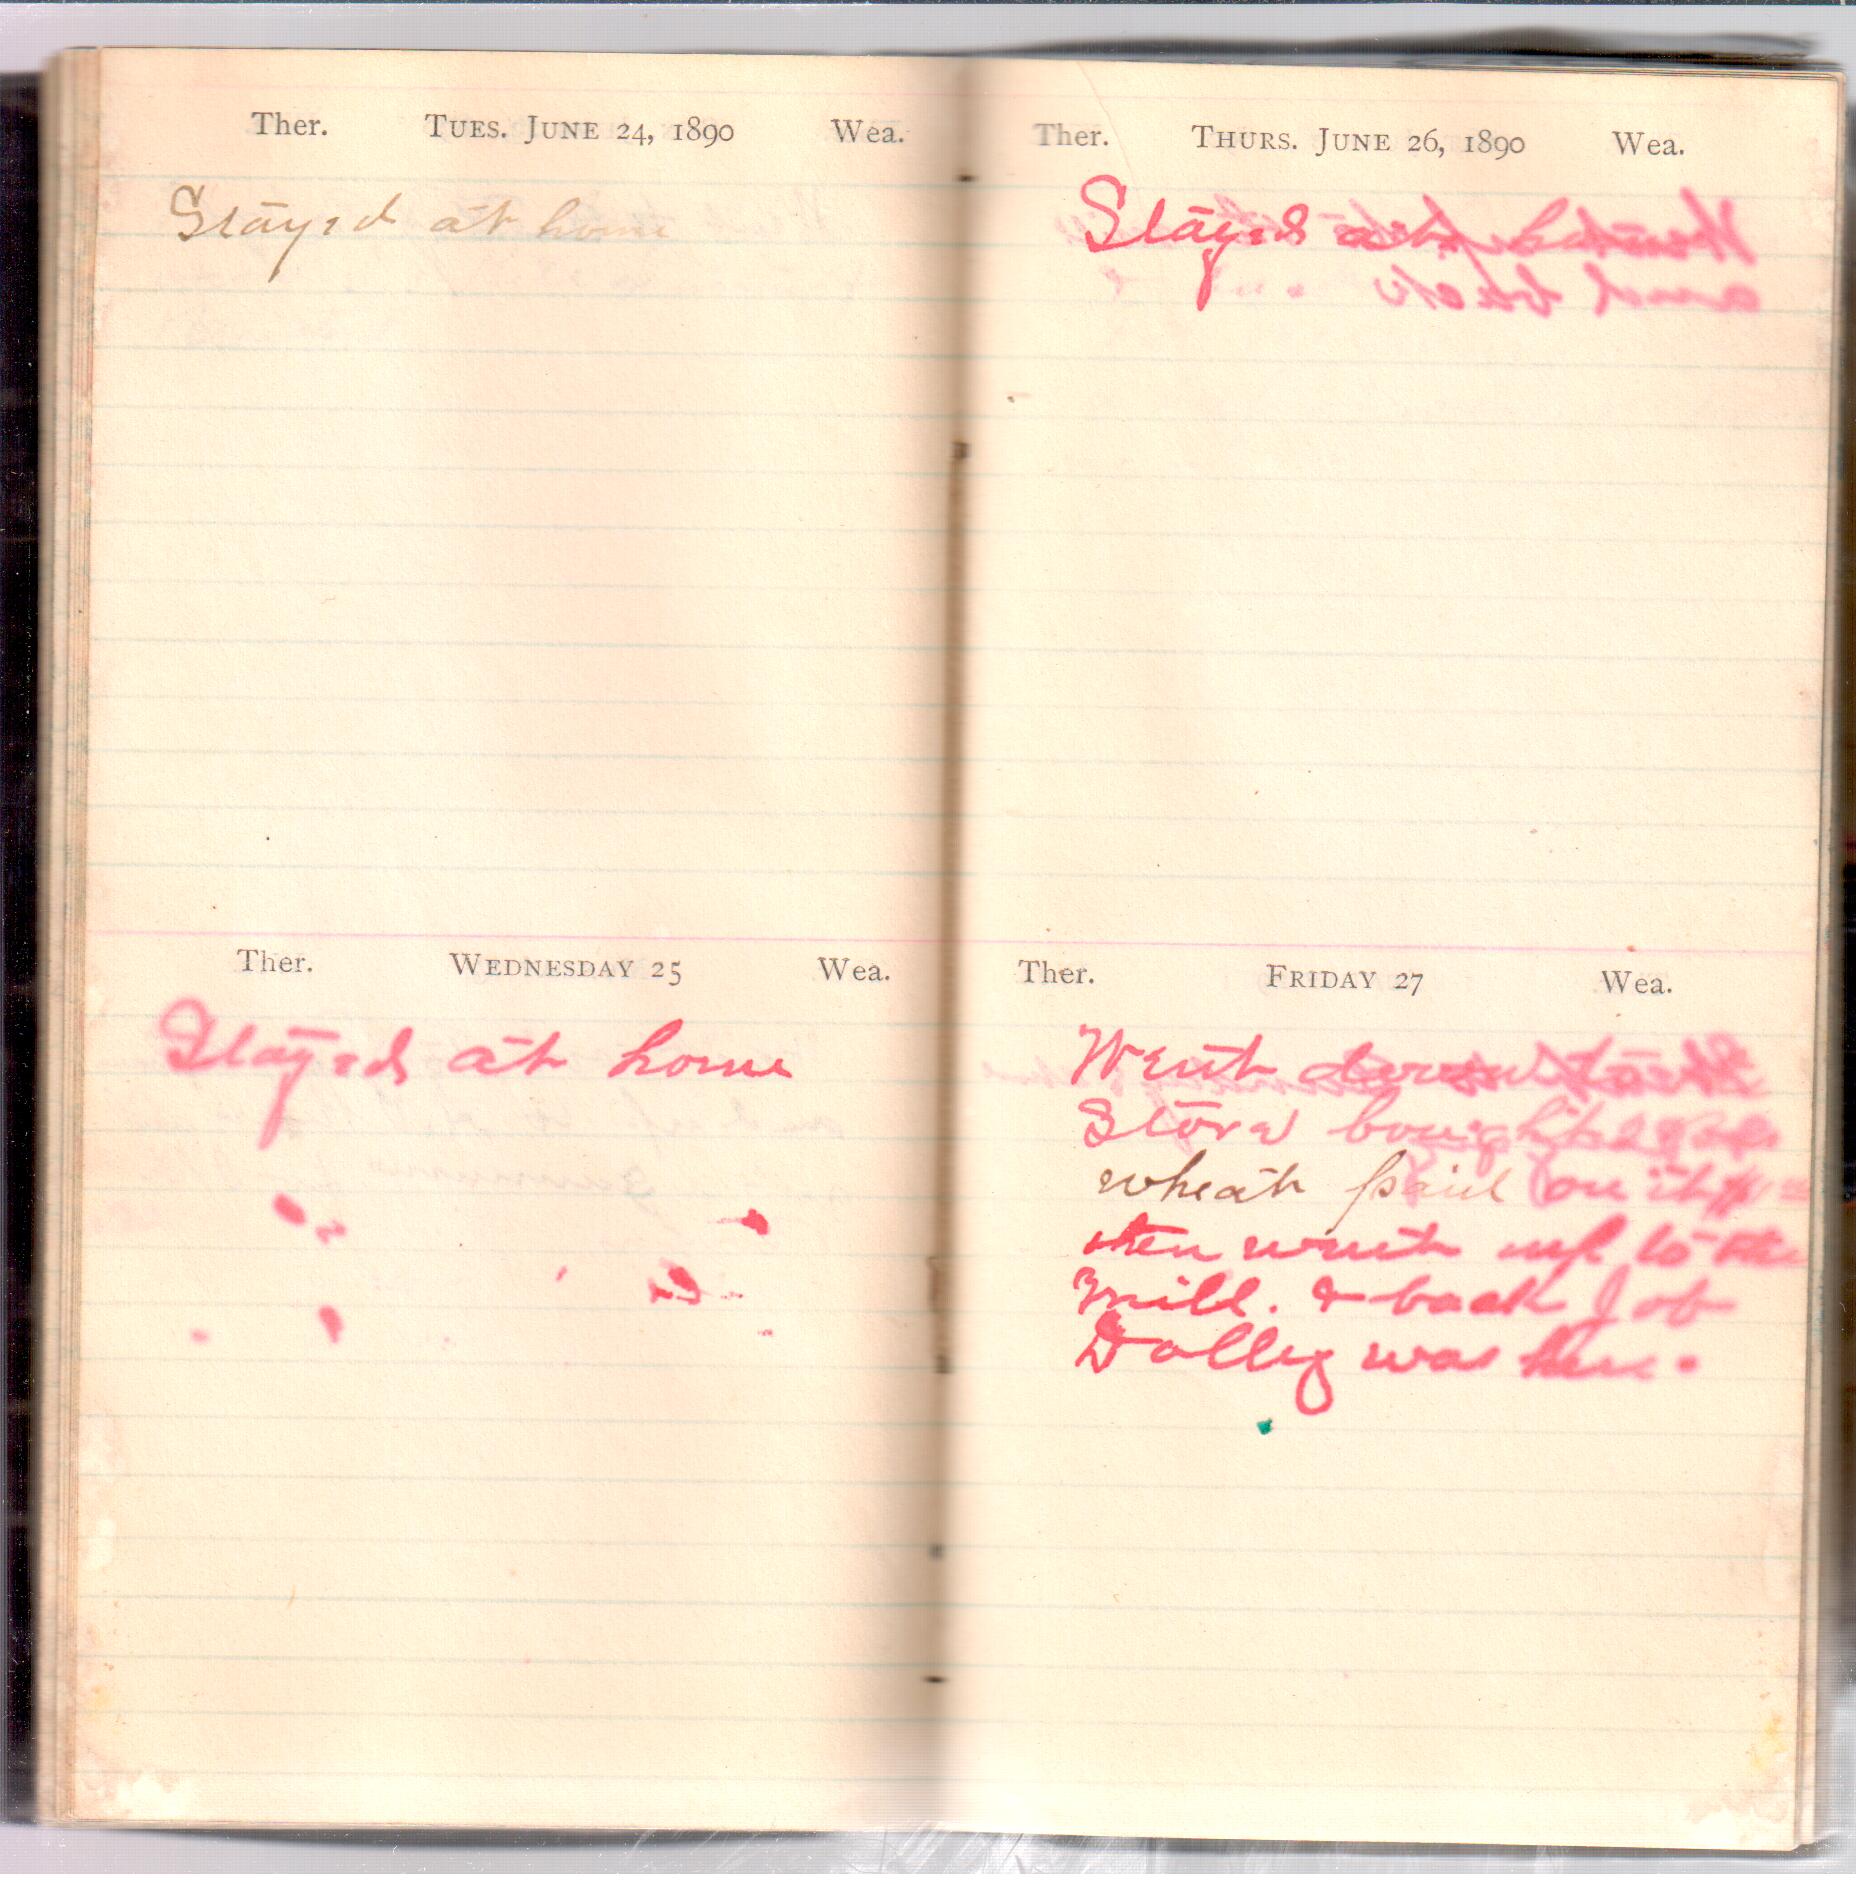 Ther. TUES. JUNE 24, 1890 Wea.
Stayed at home
Ther. WEDNESDAY 25 Wea.
Stayed at home
Ther. THURS. JUNE 26, 1890 Wea.
Stayed at home
Ther. FRIDAY 27 Wea.
Went down to the
Store bought
wheat paid on it
then went up to the
mill. & back Job
Dolley was here.